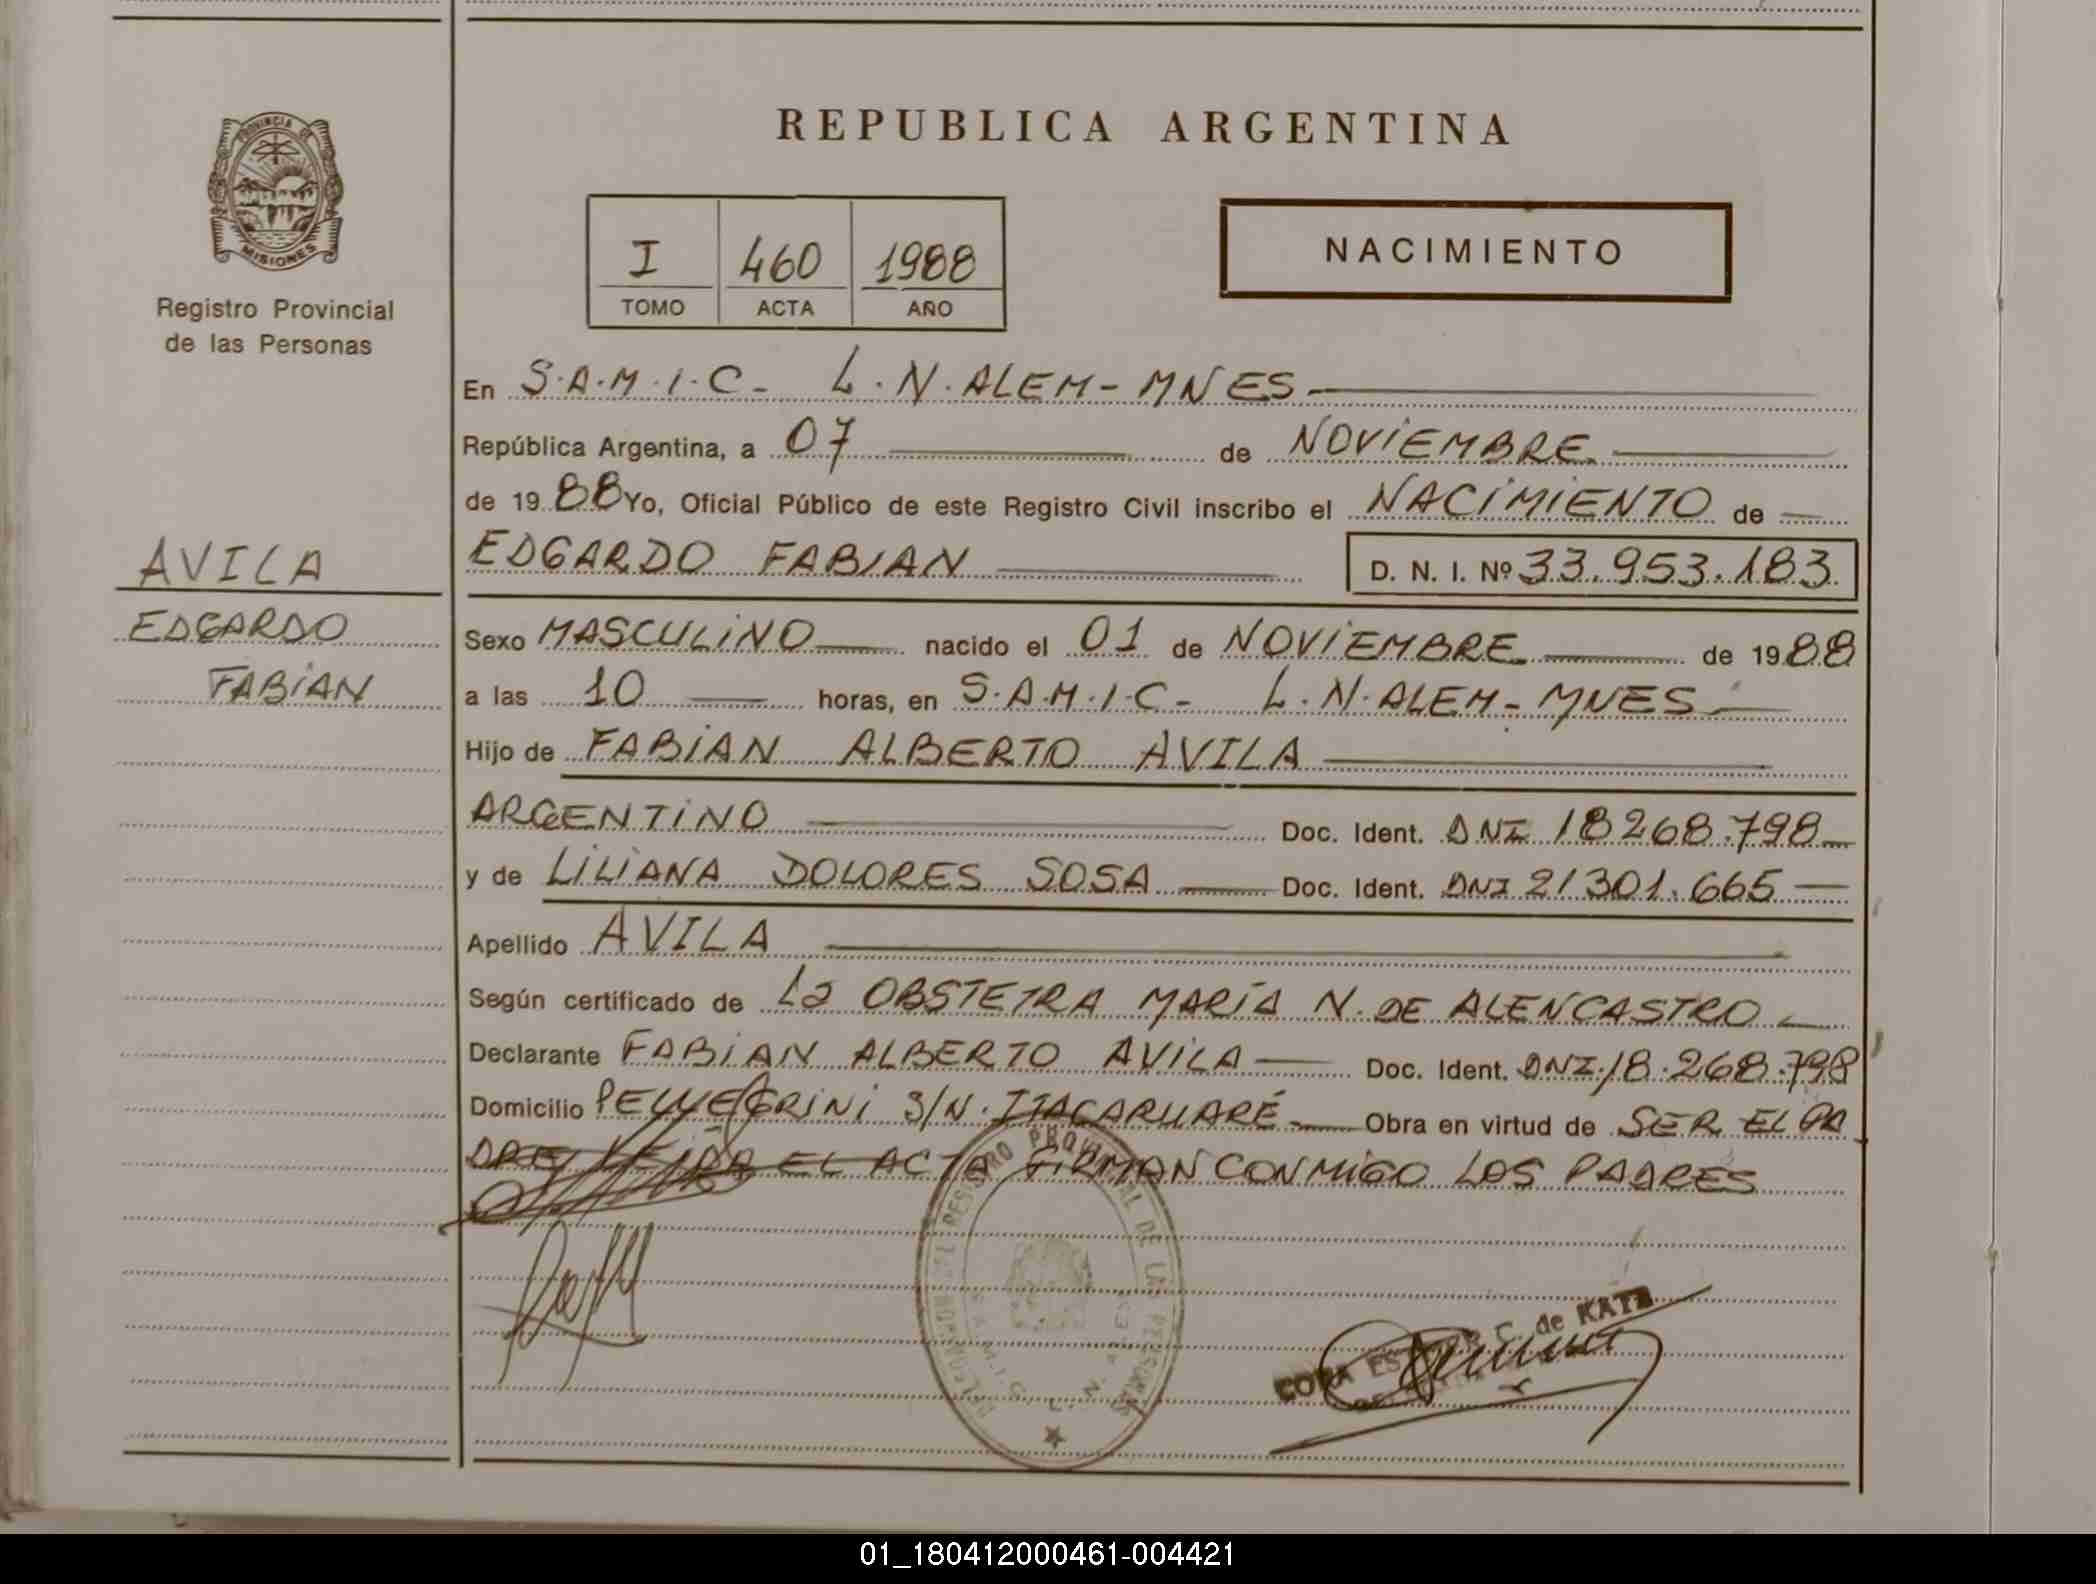 PROVINCIA DE
MISIONES
Registro Provincial
de las Personas
AVILA
EDGARDO
FABIAN
REPUBLICA ARGENTINA
I 460 1988
TOMO ACTA AÑO
NACIMIENTO
En S.A.M.I.C- L.N.ALEM-MNES
República Argentina, a 07 de NOVIEMBRE
de 1988 Yo, Oficial Público de este Registro Civil inscribo el NACIMIENTO de
EDGARDO FABIAN D. N. I. Nº 33.953.183
Sexo MASCULINO nacido el 01 de NOVIEMBRE de 1988
a las 10 horas, en S.A.M.I.C- L.N.ALEM-MNES
Hijo de FABIAN ALBERTO AVILA
ARGENTINO Doc. Ident. DNI 18268.798
y de LILIANA DOLORES SOSA Doc. Ident. DNI 21301.665
Apellido AVILA
Según certificado de La OBSTETRA MARÍA N. DE ALENCASTRO
Declarante FABIAN ALBERTO AVILA Doc. Ident. DNI.18.268.798
Domicilio PELLEGRINI S/N. ITACARUARÉ Obra en virtud de SER EL PA
DRE EL ACTA FIRMAN CONMIGO LOS PADRES
REGISTRO PROVINCIAL DE LAS PERSONAS
S.A.M.I.C. L. N. ALEM
CORA ESTHER C. de KATZ
01_180412000461-004421